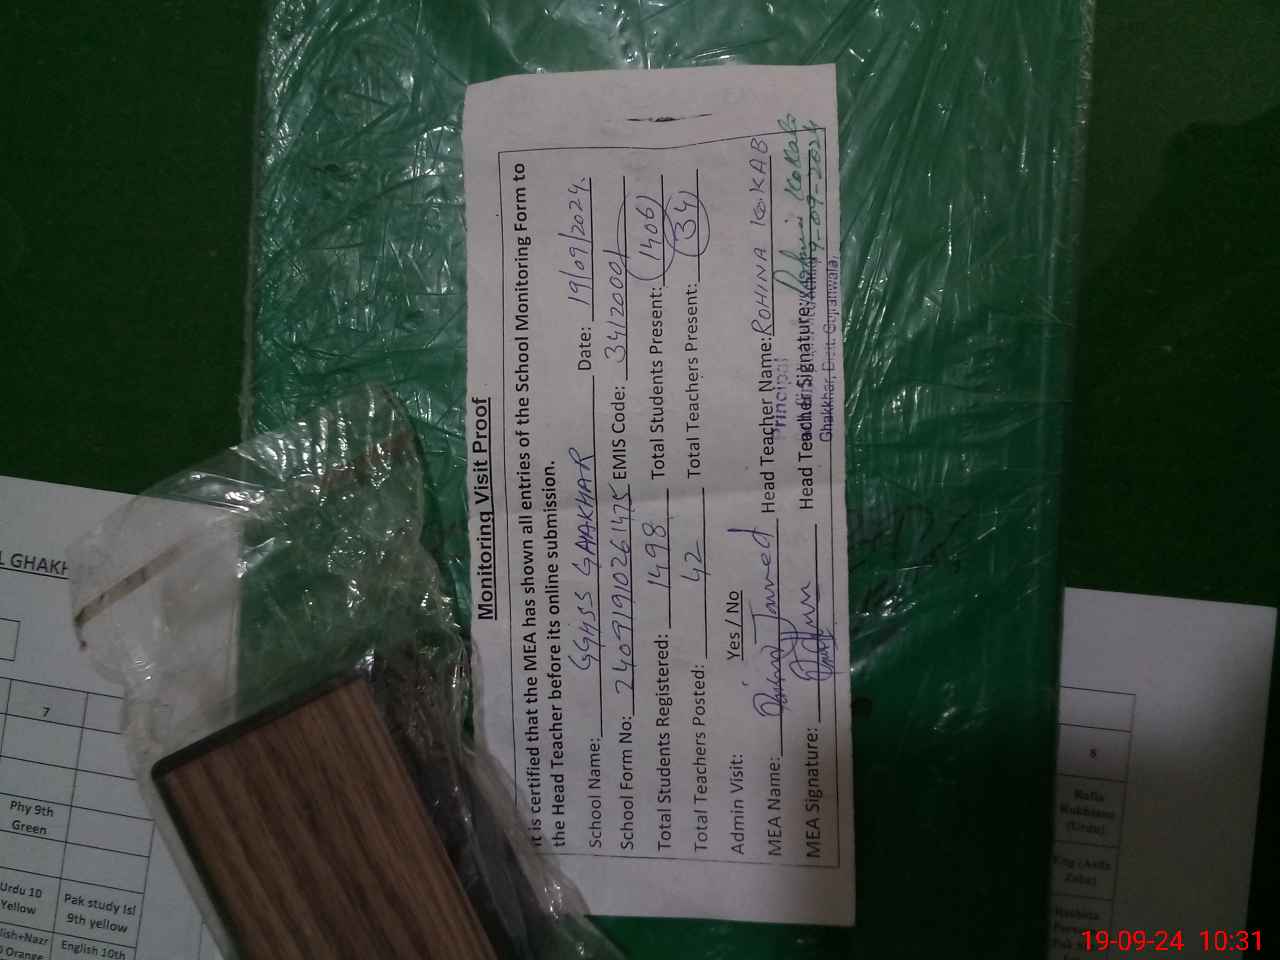 Monitoring Visit Proof
It is certified that the MEA has shown all entries of the School Monitoring Form to
the Head Teacher before its online submission.
School Name: GGHSS GHAKHAR Date: 19/09/2024.
School Form No: 24091910261475 EMIS Code: 34120001
Total Students Registered: 1498 Total Students Present: 1406
Total Teachers Posted: 42 Total Teachers Present: 34
Admin Visit: Yes / No
MEA Name: Javed Head Teacher Name: ROHINA KOKAB
Principal
MEA Signature: Head Teacher Signature: Rohina Kokab
19-09-2024
Ghakkhar, Distt. Gujranwala.
L GHAKH
7
Phy 9th
Green
Urdu 10
Yellow
Pak study Isl
9th yellow
lish+Nazr
Orange
English 10th
8
Rafia
Rukhsana
(Urdu)
Eng (Asifa
Zaba)
19-09-24 10:31